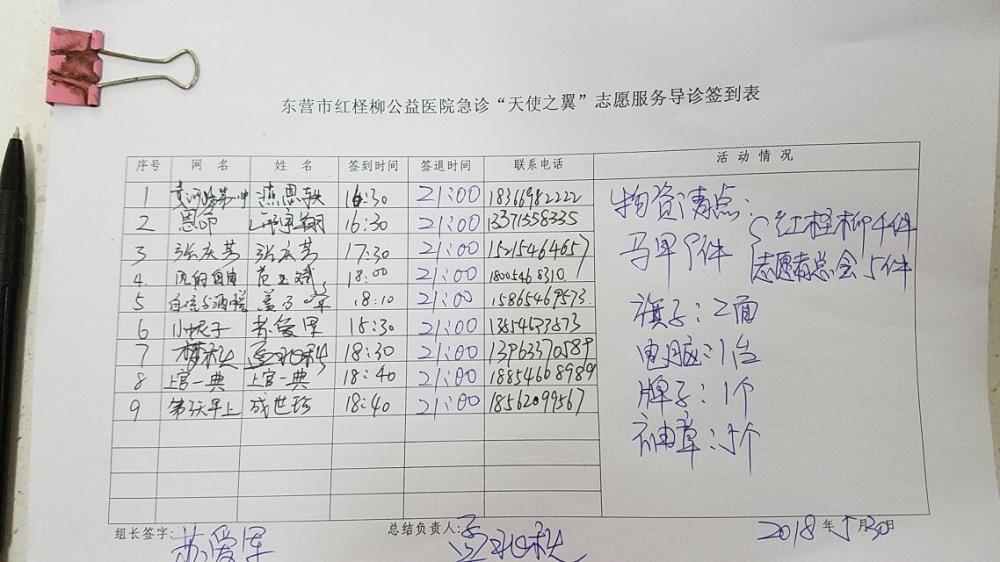 东营市红柽柳公益医院急诊“天使之翼”志愿服务导诊签到表
序号 网 名 姓 名 签到时间 签退时间 联系电话 活动情况
1 燕恩轶 16:30 21:00 18366982222
2 恩希 16:30 21:00 13371558335
3 张庆芳 张庆芳 17:30 21:00 15215464657
4 风的自由 范玉斌 18:00 21:00 18005468310
5 18:10 21:00 15865469573
6 小妮子 苏爱军 18:30 21:00 13854637873
7 梦秋 孟祥秋 18:30 21:00 13963370589
8 上官一典 上官一典 18:40 21:00 18854668989
9 第一次早上 成世珍 18:40 21:00 18562099567
物资清点:
马甲9件 { 红柽柳4件
志愿者总会5件
旗子:2面
电脑:1台
牌子:1个
袖章:5个
组长签字: 苏爱军 总结负责人: 2018年5月30日